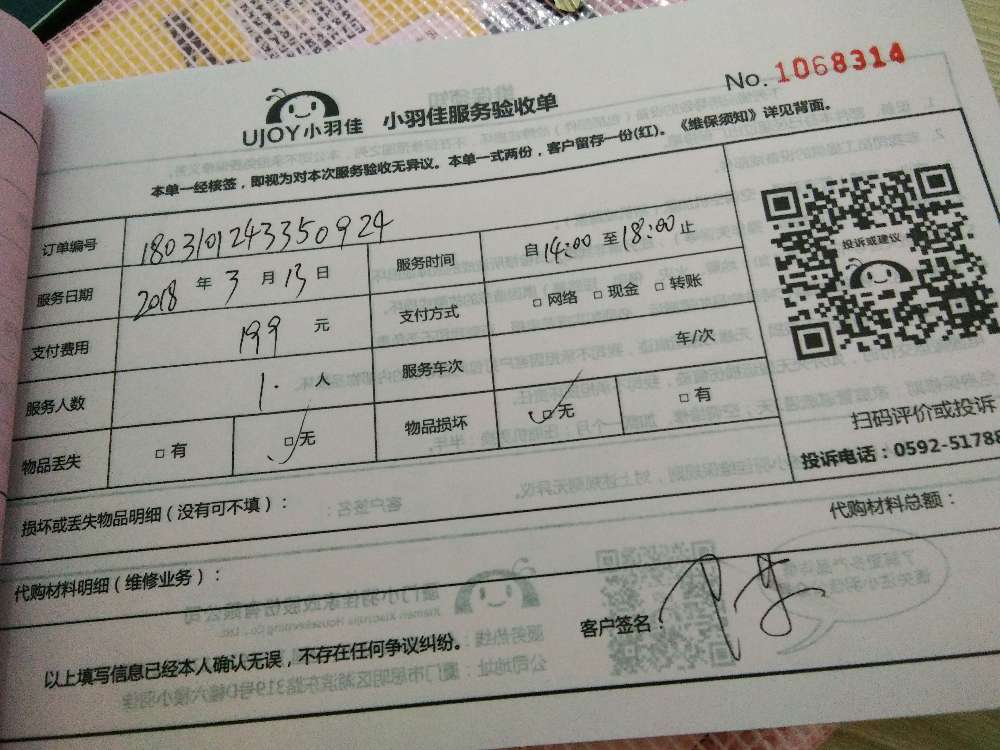 UJOY小羽佳 小羽佳服务验收单 No. 1068314
本单一经核签，即视为对本次服务验收无异议。本单一式两份，客户留存一份(红)。《维保须知》详见背面。
订单编号 1803101243350924
服务日期 2018 年 3 月 13 日 服务时间 自14:00 至18:00 止
支付费用 199 元 支付方式 □ 网络 □ 现金 □ 转账
服务人数 1. 人 服务车次 车/次
物品丢失 □ 有 ☑ 无 物品损坏 ☑ 无 □ 有
投诉或建议
扫码评价或投诉
投诉电话：0592-51788
损坏或丢失物品明细（没有可不填）：
代购材料明细（维修业务）： 代购材料总额：
以上填写信息已经本人确认无误，不存在任何争议纠纷。 客户签名：